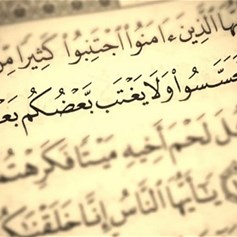 ٱلَّذِينَ ءَامَنُوا۟ ٱجْتَنِبُوا۟ كَثِيرًا مِّنَ
تَجَسَّسُوا۟ وَلَا يَغْتَب بَّعْضُكُم بَعْ
لَحْمَ أَخِيهِ مَيْتًا فَكَرِهْتُمُ
يَٰٓأَيُّهَا ٱلنَّاسُ إِنَّا خَلَقْنَٰكُ